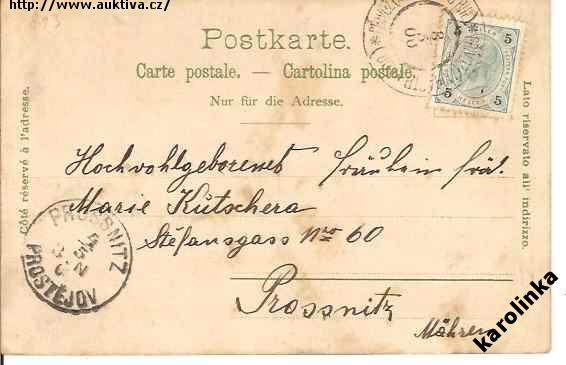 www.auktiva.cz/
Postkarte.
Carte postale. — Cartolina postale.
Nur für die Adresse.
Côté réservé à l'adresse.
Lato riservato all' indirizzo.
5 5
5 5
Hochwohlgeborenes Fräulein Frl.
Marie Kutschera
Stefansgass Nro 60
Prossnitz
Mähren
PROSSNITZ
PROSTĚJOV
karolinka